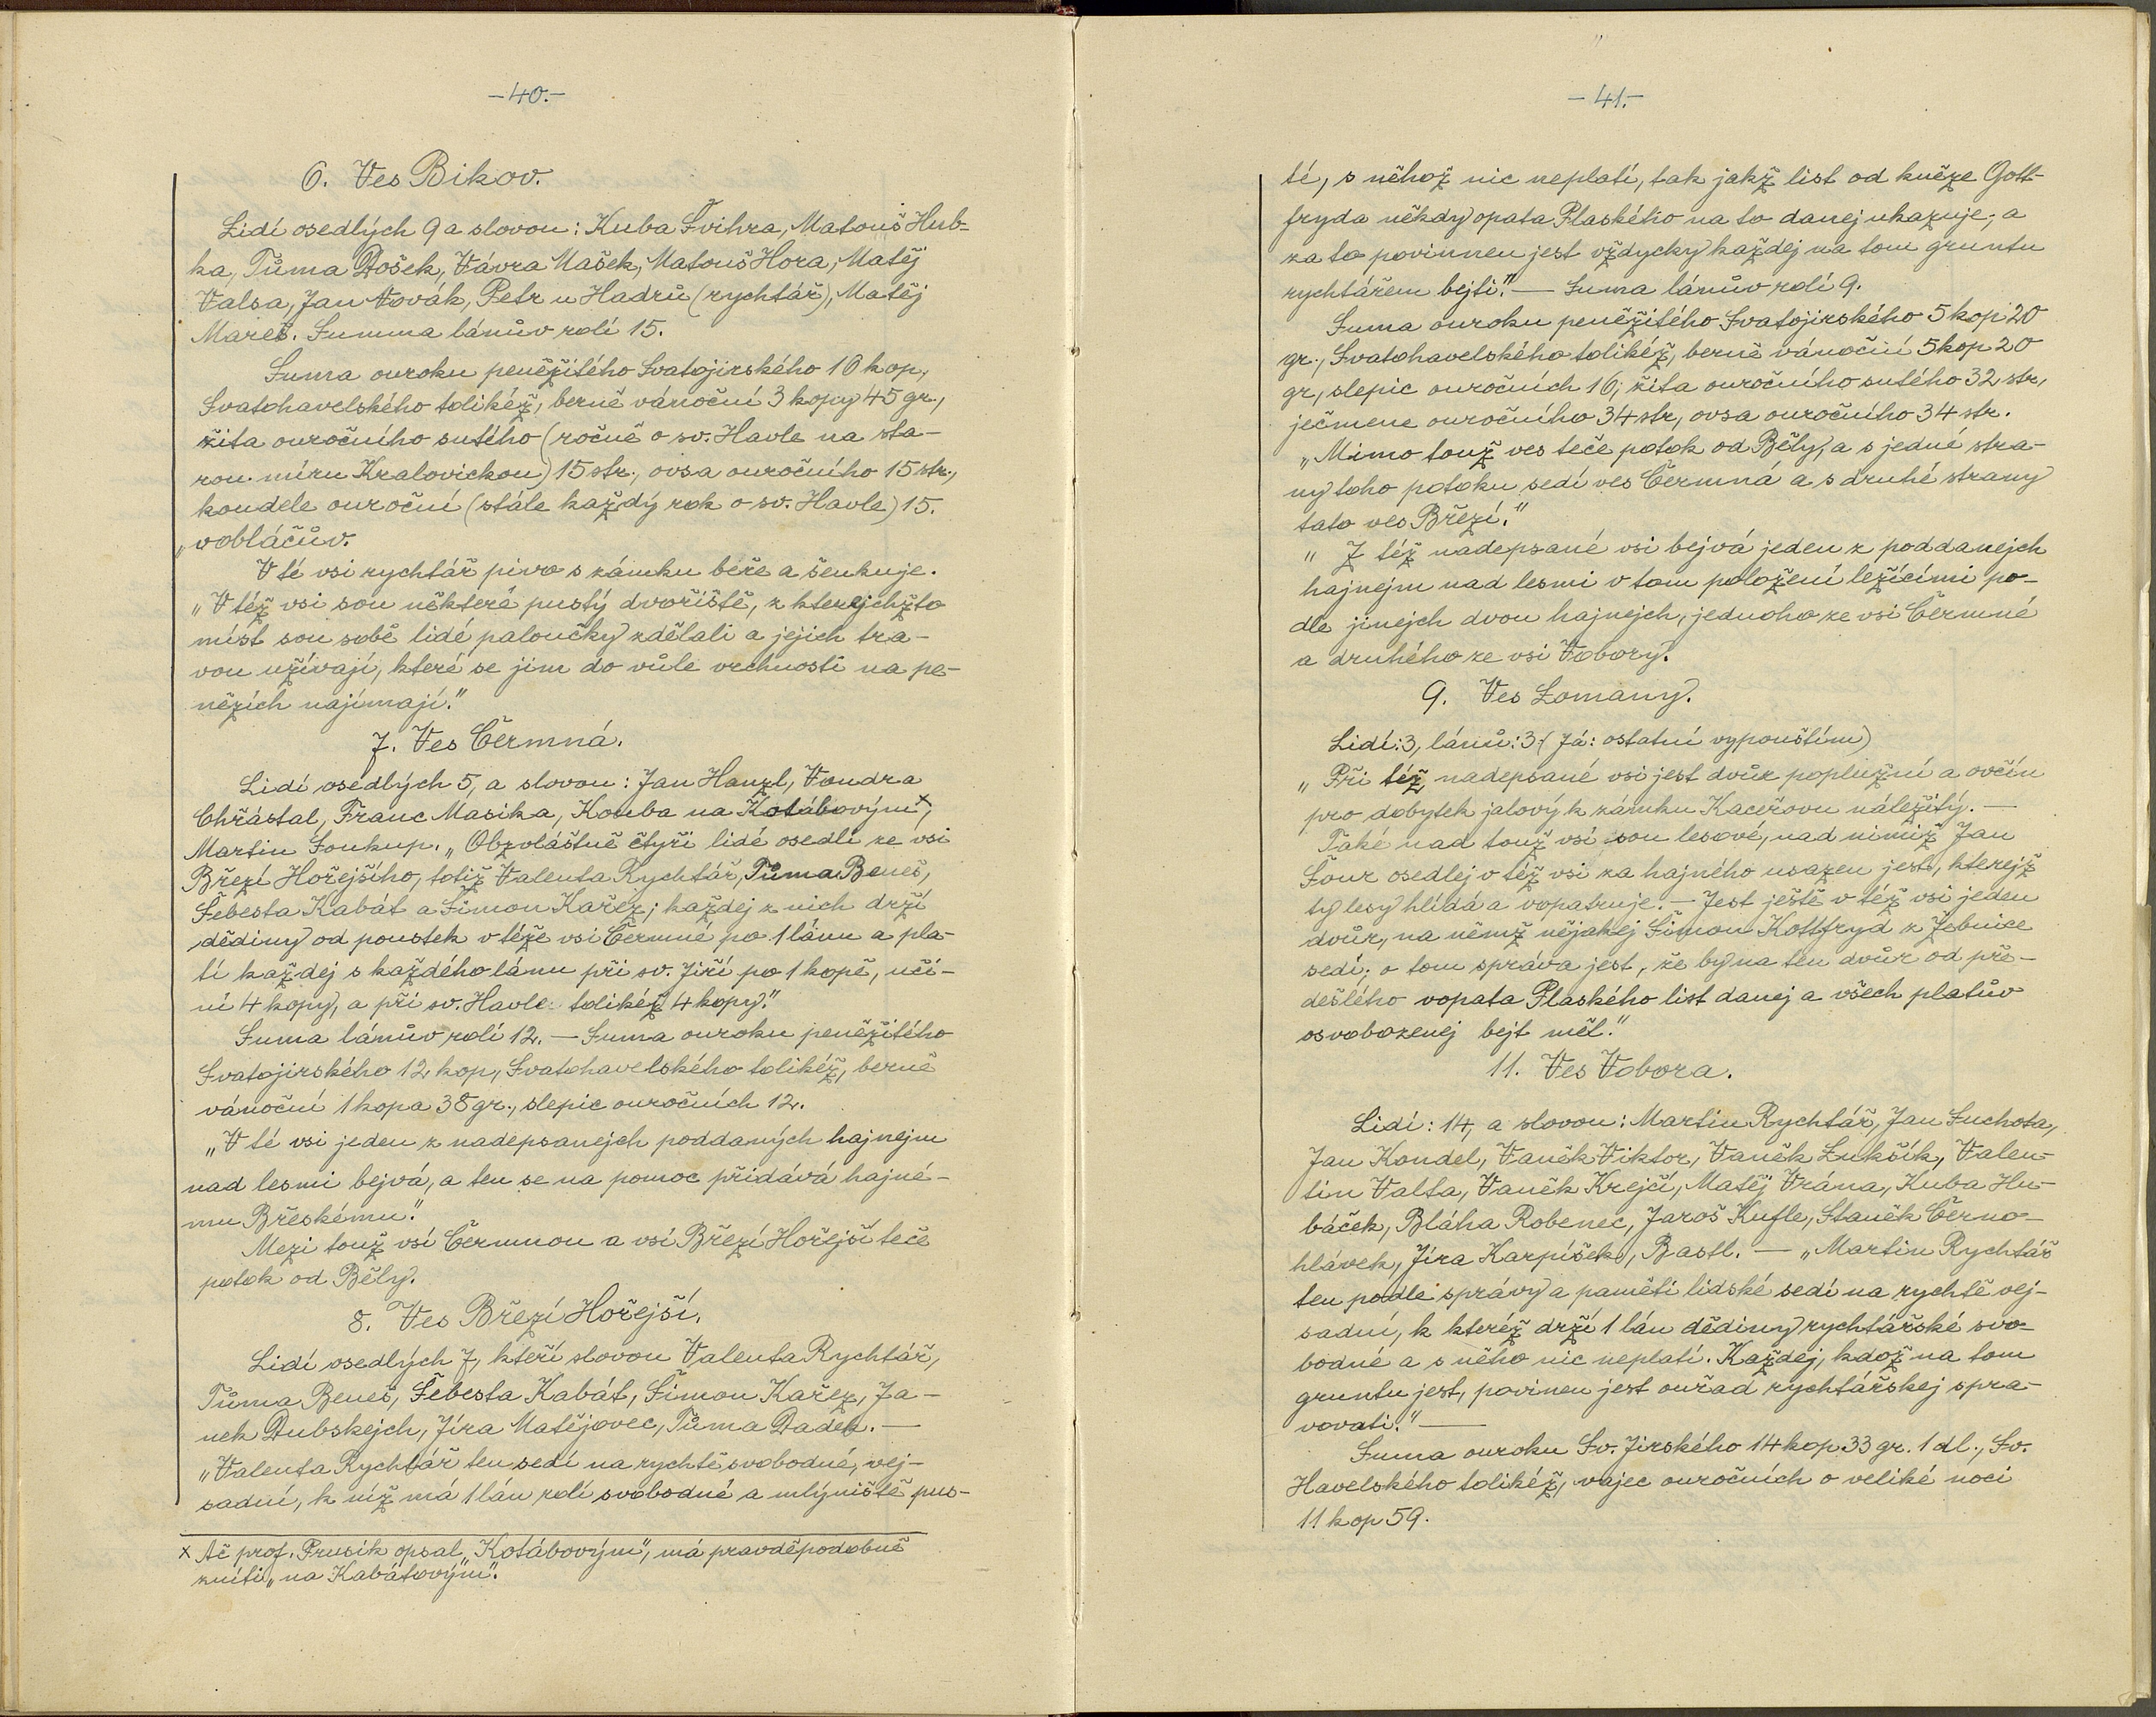 -40.-
6. Ves Bikov.
Lidí osedlých 9 a slovou: Kuba Švihra, Matouš Hub-
ka, Tůma Došek, Vávra Mašek, Matouš Hora, Matěj
Valsa, Jan Novák, Petr u Hadrů (rychtář), Matěj
Mareš. Summa lánův rolí 15.
Suma ouroku peněžitého Svatojirského 16 kop,
Svatohavelského tolikéž, berně vánoční 3 kopy 45 gr.,
žita ouročního sutého (ročně o sv. Havle na sta-
rou míru Kralovickou) 15 str., ovsa ouročního 15 str.,
koudele ouroční (stále každý rok o sv. Havle) 15.
„vobláčův.
V té vsi rychtář pivo s zámku béře a šenkuje.
„V též vsi sou některé pustý dvořiště, z kterejchžto
míst sou sobě lidé paloučky zdělali a jejich tra-
vou užívají, které se jim do vůle vrchnosti na pe-
nězích najímají."
7. Ves Čermná.
Lidí osedlých 5, a slovou: Jan Hanzl, Vondra
Chřástal, Franc Masika, Kouba na Kotábovým x,
Martin Soukup. „Obzvláštně čtyři lidé osedlí ze vsi
Březí Hořejšího, totiž Valenta Rychtář, Tůma Beneš,
Šebesta Kabát a Šimon Kařez; každej z nich drží
dědiny od poustek v téže vsi Čermné po 1 lánu a pla-
tí každej s každého lánu při sv. Jiří po 1 kopě, učí-
ní 4 kopy, a při sv. Havle tolikéž 4 kopy."
Suma lánův rolí 12. — Suma ouroku peněžitého
Svatojirského 12 kop, Svatohavelského tolikéž, berně
vánoční 1 kopa 38 gr., slepic ouročních 12.
„V té vsi jeden z nadepsanejch poddaných hajnejm
nad lesmi bejvá, a ten se na pomoc přidává hajné-
mu Břeskému."
Mezi touž vsí Čermnou a vsí Březí Hořejší teče
potok od Běly.
8. Ves Březí Hořejší.
Lidí osedlých 7, kteří slovou Valenta Rychtář,
Tůma Beneš, Šebesta Kabát, Šimon Kařez, Ja-
nek Dubskejch, Jíra Matějovec, Tůma Dadek. —
„Valenta Rychtář ten sedí na rychtě svobodné, vej-
sadní, k níž má 1 lán rolí svobodné a mlýniště pus-
x Ač prof. Prusík opsal „Kotábovým", má pravděpodobně
zníti „na Kabátovým".
-41.-
té, s něhož nic neplatí, tak jakž list od kněze Gott-
fryda někdy opata Plaského na to danej ukazuje; a
za to povinnen jest vždycky každej na tom gruntu
rychtářem bejti." — Suma lánův rolí 9.
Suma ouroku peněžitého Svatojirského 5 kop 20
gr., Svatohavelského tolikéž, berně vánoční 5 kop 20
gr, slepic ouročních 16, žita ouročního sutého 32 str,
ječmene ouročního 34 str, ovsa ouročního 34 str.
„Mimo touž ves teče potok od Běly, a s jedné stra-
ny toho potoku sedí ves Čermná a s druhé strany
tato ves Březí."
„Z též nadepsané vsi bejvá jeden z poddanejch
hajnejm nad lesmi v tom položení ležícími po-
dle jinejch dvou hajnejch, jednoho ze vsi Čermné
a druhého ze vsi Vobory.
9. Ves Lomany.
Lidí: 3, lánů: 3 (Já: ostatní vypouštím)
„Při též nadepsané vsi jest dvůr poplužní a ovčín
pro dobytek jalový k zámku Kaceřovu náležitý. —
Také nad touž vsí sou lesové, nad nimiž Jan
Šour osedlej v též vsi za hajného usazen jest, kterejž
ty lesy hlídá a vopatruje. — Jest ještě v též vsi jeden
dvůr, na němž nějakej Šimon Kottfryd z Žebnice
sedí; o tom správa jest, že by na ten dvůr od pře-
dešlého vopata Plaského list danej a všech platův
osvobozenej bejt měl."
11. Ves Vobora.
Lidí: 14, a slovou: Martin Rychtář, Jan Suchota,
Jan Kondel, Vaněk Viktor, Vaněk Lukšík, Valen-
tin Valta, Vaněk Krejčí, Matěj Vrána, Kuba Hu-
báček, Bláha Robenec, Jaroš Kufle, Staněk Černo-
hlávek, Jíra Karpíšek, Bastl. — „Martin Rychtář
ten podle správy a paměti lidské sedí na rychtě vej-
sadní, k kteréž drží 1 lán dědiny rychtářské svo-
bodné a s něho nic neplatí. Každej, kdož na tom
gruntu jest, povinen jest ouřad rychtářskej spra-
vovati." —
Suma ouroku Sv. Jirského 14 kop 33 gr. 1 dl., Sv.
Havelského tolikéž, vajec ouročních o veliké noci
11 kop 59.